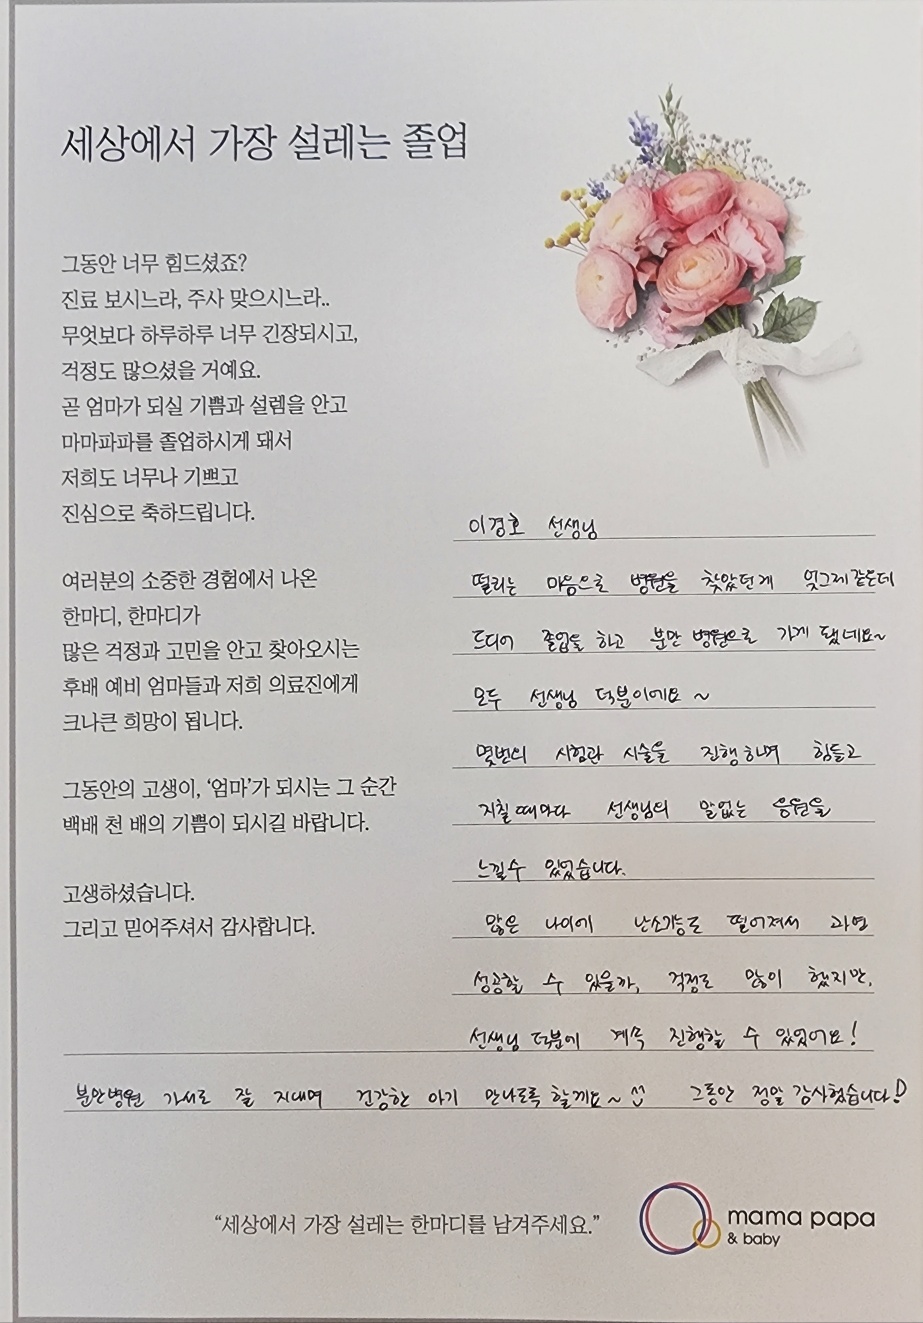 세상에서 가장 설레는 졸업
그동안 너무 힘드셨죠?
진료 보시느라, 주사 맞으시느라..
무엇보다 하루하루 너무 긴장되시고,
걱정도 많으셨을 거예요.
곧 엄마가 되실 기쁨과 설렘을 안고
마마파파를 졸업하시게 돼서
저희도 너무나 기쁘고
진심으로 축하드립니다.
여러분의 소중한 경험에서 나온
한마디, 한마디가
많은 걱정과 고민을 안고 찾아오시는
후배 예비 엄마들과 저희 의료진에게
크나큰 희망이 됩니다.
그동안의 고생이, ‘엄마’가 되시는 그 순간
백배 천 배의 기쁨이 되시길 바랍니다.
고생하셨습니다.
그리고 믿어주셔서 감사합니다.
이경호 선생님
떨리는 마음으로 병원을 찾았던게 엊그제같은데
드디어 졸업을 하고 분만 병원으로 가게 됐네요~
모두 선생님 덕분이에요 ~
몇번의 시험관 시술을 진행하며 힘들고
지칠때마다 선생님의 말없는 응원을
느낄수 있었습니다.
많은 나이에 난소기능도 떨어져서 과연
성공할 수 있을까, 걱정도 많이 했지만,
선생님 덕분에 계속 진행할 수 있었어요!
분만병원 가서도 잘 지내며 건강한 아기 만나도록 할께요~ ^^ 그동안 정말 감사했습니다!
“세상에서 가장 설레는 한마디를 남겨주세요.”
mama papa
& baby